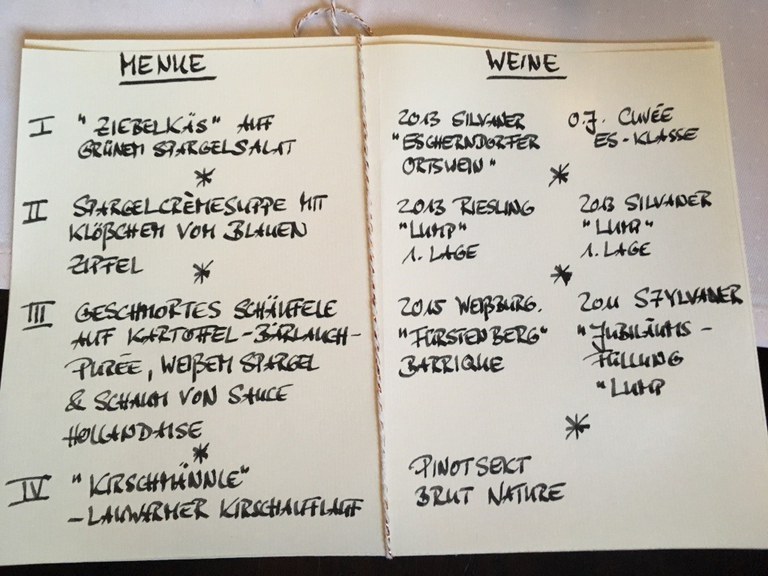 MENUE
I "ZIEBELKÄS" AUF
GRÜNEM SPARGELSALAT
*
II SPARGELCRÈMESUPPE MIT
KLÖßCHEN VOM BLAUEN
ZIPFEL
*
III GESCHMORTES SCHÄUFELE
AUF KARTOFFEL-BÄRLAUCH-
PURÉE, WEIßEM SPARGEL
& SCHAUM VON SAUCE
HOLLANDAISE
*
IV "KIRSCHMÄNNLE"
-LAUWARMER KIRSCHAUFLAUF
WEINE
2013 SILVANER
"ESCHERNDORFER
ORTSWEIN"
O.J. CUVÉE
ES-KLASSE
*
2013 RIESLING
"LUMP"
1. LAGE
2013 SILVANER
"LUMP"
1. LAGE
*
2015 WEIßBURG.
"FÜRSTENBERG"
BARRIQUE
2011 SYLVANER
"JUBILÄUMS-
FÜLLUNG
"LUMP
*
PINOTSEKT
BRUT NATURE